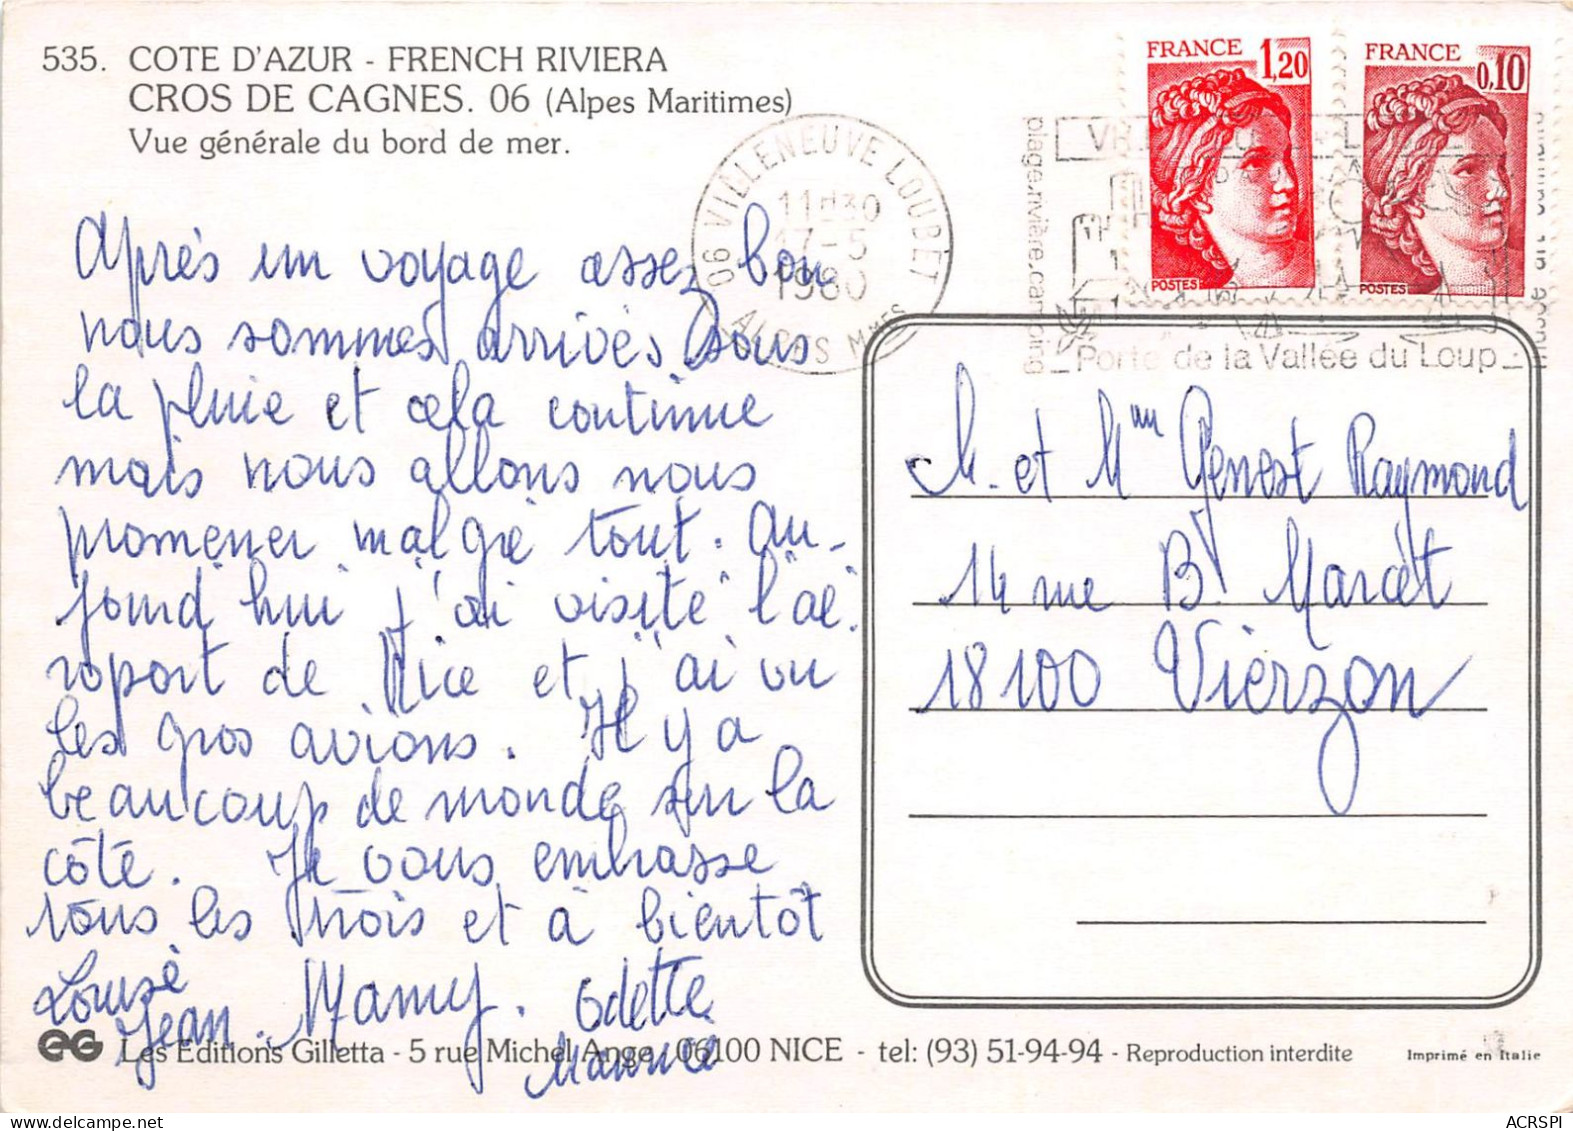 535. COTE D'AZUR - FRENCH RIVIERA
CROS DE CAGNES. 06 (Alpes Maritimes)
Vue générale du bord de mer.
FRANCE
1,20
POSTES
FRANCE
0,10
POSTES
06 VILLENEUVE LOUBET
11H30
17-5
1980
ALPES MMES
plage.rivière.camping
Porte de la Vallée du Loup
Après un voyage assez bon
nous sommes arrivés sous
la pluie et cela continue
mais nous allons nous
promener malgré tout. Au-
jourd'hui j'ai visité l'aé
roport de Nice et j'ai vu
les gros avions. Il y a
beaucoup de monde sur la
côté. Je vous embrasse
tous les trois et à bientôt
Mamy. Odette
Jean.
Maurice
M. et Mme Genest Raymond
14 rue Bd Marcét
18100 Vierzon
EG Les Editions Gilletta - 5 rue Michel Ange, 06100 NICE - tel: (93) 51-94-94 - Reproduction interdite
Imprimé en Italie
ACRSPI